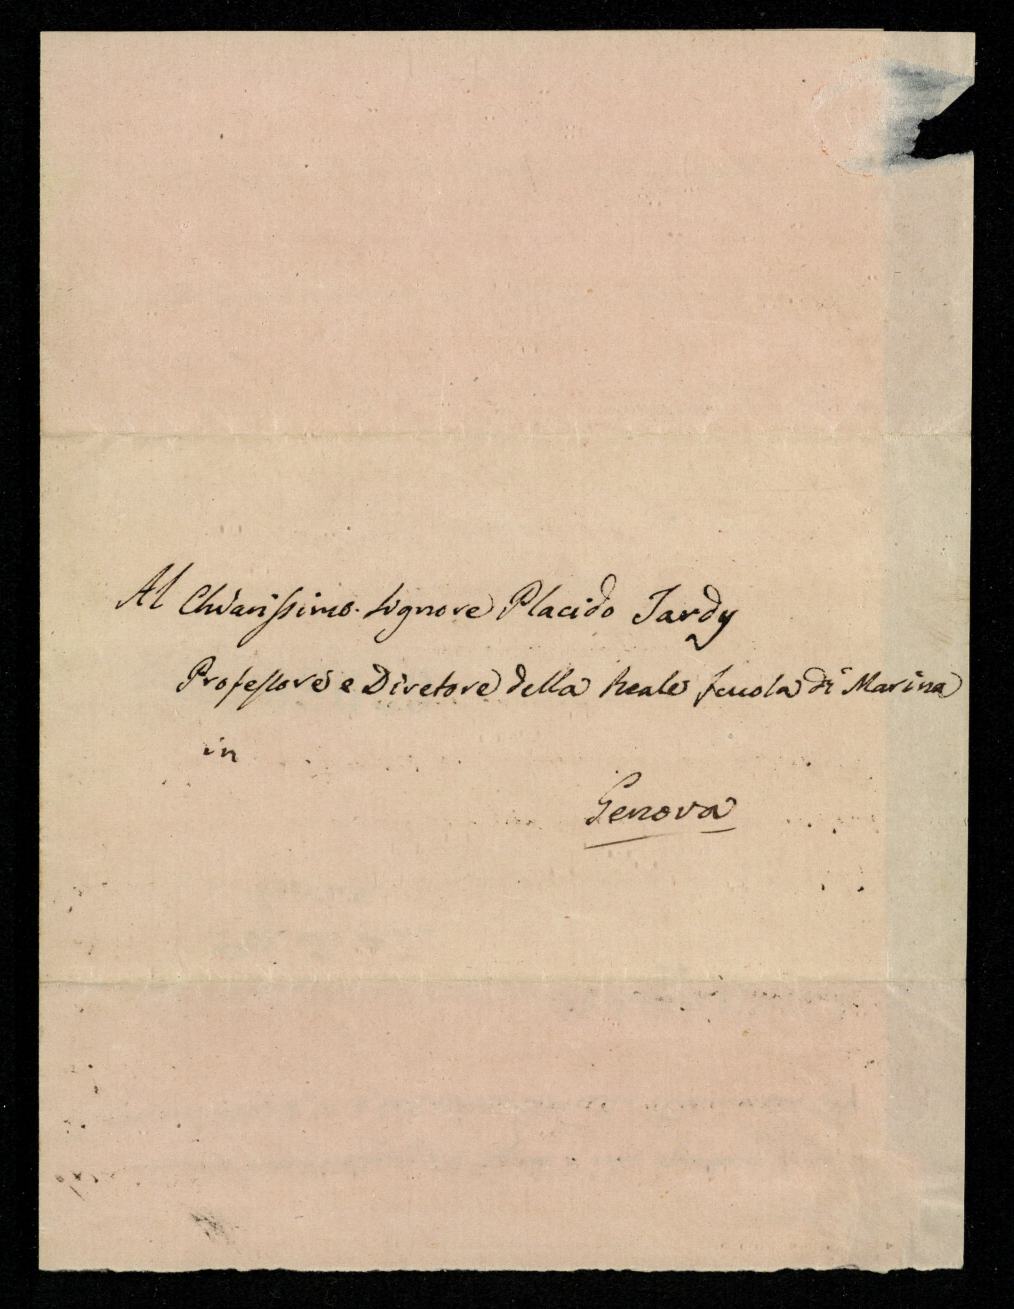 Al Chiarissimo Signore Placido Tardy
Professore e Diretore della Reale Scuola di Marina
in
Genova